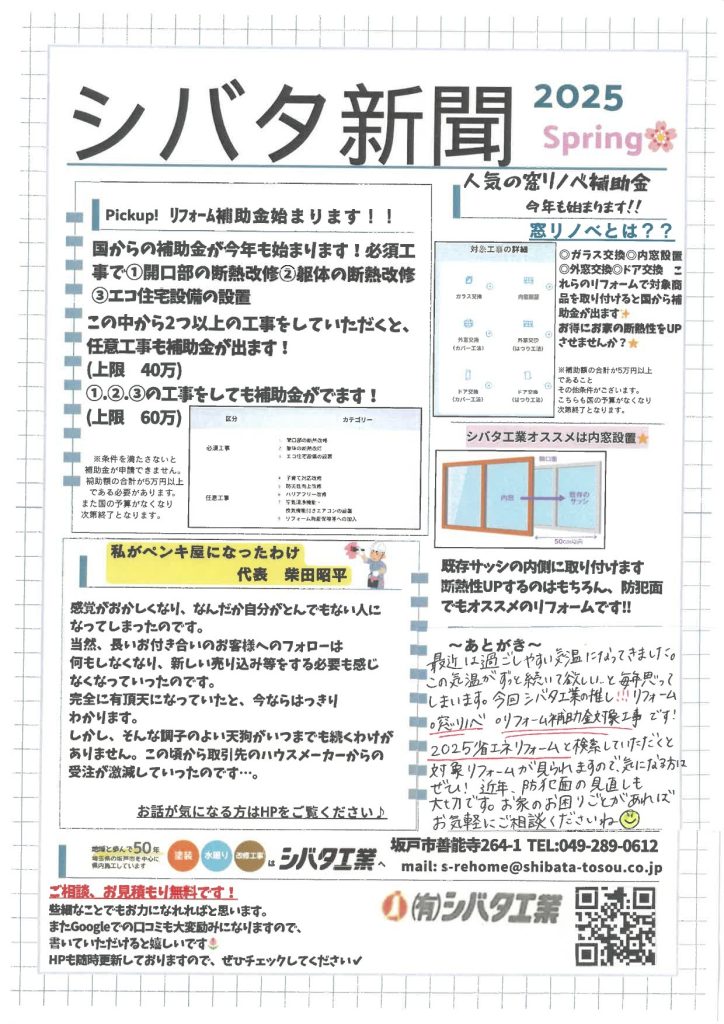 シバタ新聞
2025
Spring
Pickup! リフォーム補助金始まります！！
国からの補助金が今年も始まります！必須工
事で①開口部の断熱改修②躯体の断熱改修
③エコ住宅設備の設置
この中から2つ以上の工事をしていただくと、
任意工事も補助金が出ます！
(上限　40万)
①.②.③の工事をしても補助金がでます！
(上限　60万)
※条件を満たさないと
補助金が申請できません。
補助額の合計が5万円以上
である必要があります。
また国の予算がなくなり
次第終了となります。
区分　カテゴリー
必須工事
1 開口部の断熱改修
2 躯体の断熱改修
3 エコ住宅設備の設置
任意工事
4 子育て対応改修
5 防災性向上改修
6 バリアフリー改修
7 空気清浄機能・
換気機能付きエアコンの設置
8 リフォーム瑕疵保険等への加入
人気の窓リノベ補助金
今年も始まります!!
窓リノベとは？？
対象工事の詳細
ガラス交換　内窓設置
外窓交換　外窓交換
(カバー工法)　(はつり工法)
ドア交換　ドア交換
(カバー工法)　(はつり工法)
◎ガラス交換◎内窓設置
◎外窓交換◎ドア交換　こ
れらのリフォームで対象商
品を取り付けると国から補
助金が出ます
お得にお家の断熱性をUP
させませんか？
※補助額の合計が5万円以上
であること
その他条件がございます。
こちらも国の予算がなくなり
次第終了となります。
シバタ工業オススメは内窓設置
開口面
内窓
既存の
サッシ
50cm以内
既存サッシの内側に取り付けます
断熱性UPするのはもちろん、防犯面
でもオススメのリフォームです!!
私がペンキ屋になったわけ
代表　柴田昭平
感覚がおかしくなり、なんだか自分がとんでもない人に
なってしまったのです。
当然、長いお付き合いのお客様へのフォローは
何もしなくなり、新しい売り込み等をする必要も感じ
なくなっていったのです。
完全に有頂天になっていたと、今ならはっきり
わかります。
しかし、そんな調子のよい天狗がいつまでも続くわけが
ありません。この頃から取引先のハウスメーカーからの
受注が激減していったのです…。
お話が気になる方はHPをご覧ください♪
～あとがき～
最近は過ごしやすい気温になってきました。
この気温がずっと続いて欲しい…と毎年思って
しまいます。今回シバタ工業の推し!!!リフォーム
○窓リノベ　○リフォーム補助金対象工事 です!
2025省エネリフォームと検索していただくと
対象リフォームが見られますので気になる方は
ぜひ! 近年、防犯面の見直しも
大切です。お家のお困りごとがあれば
お気軽にご相談くださいね
地域と歩んで50年
埼玉県の坂戸市を中心に
県内施工しています
塗装　水廻り　改修工事　は　シバタ工業　へ
坂戸市善能寺264-1 TEL:049-289-0612
mail: s-rehome@shibata-tosou.co.jp
ご相談、お見積もり無料です！
些細なことでもお力になれればと思います。
またGoogleでの口コミも大変励みになりますので、
書いていただけると嬉しいです
HPも随時更新しておりますので、ぜひチェックしてください✓
(有)シバタ工業